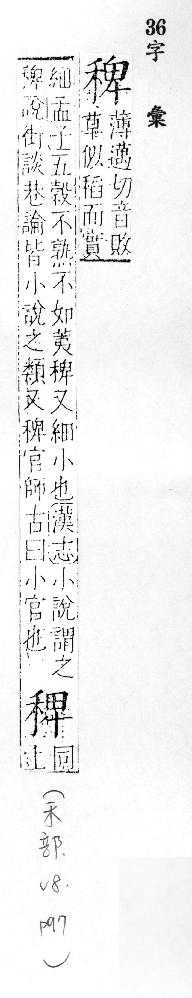 36字彙
稗
薄邁切音敗
草似稻而實
細孟子五穀不熟不如荑稗又細小也漢志小說謂之
稗說街談巷論皆小說之類又稗官師古曰小官也
稗
同
上
(禾部.
v8.
p97
)